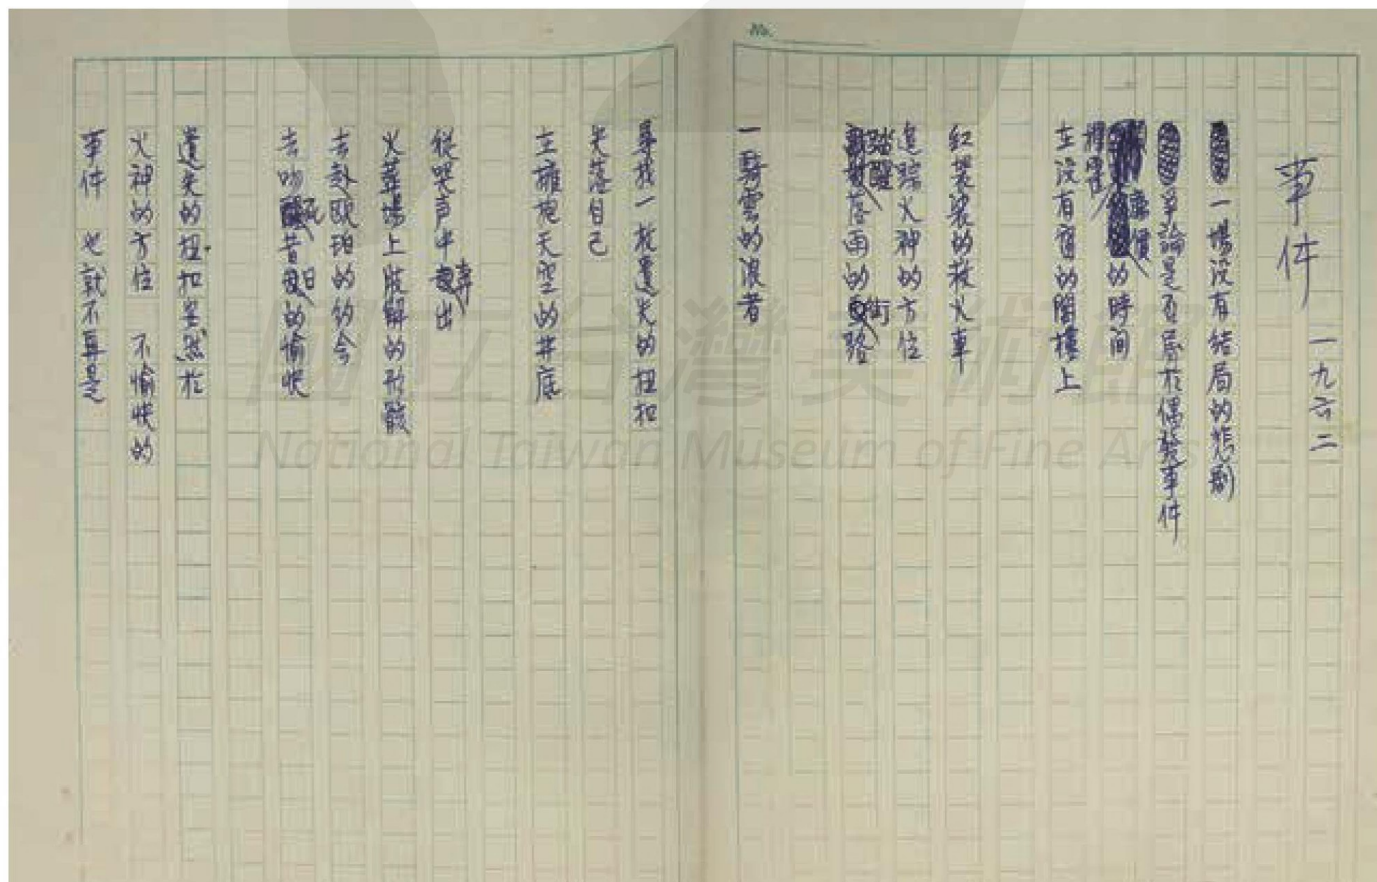 No.
事件 一九六二
一場沒有結局的悲劇
爭論是否屬於偶發事件
揮霍廉價的時间
在沒有窗的閣樓上
紅袈裟的救火車
追踪火神的方位
踏醒落雨的街
一騎雲的浪者
尋找一枚遺失的扭扣
失落自己
在擁抱天空的井底
從哭声中奔出
火葬場上肢解的形骸
去赴歐珀的約会
去吻死昔日的愉快
遺失的扭扣茫然於
火神的方位 不愉快的
事件 也就不再是
國立台灣美術館
National Taiwan Museum of Fine Arts